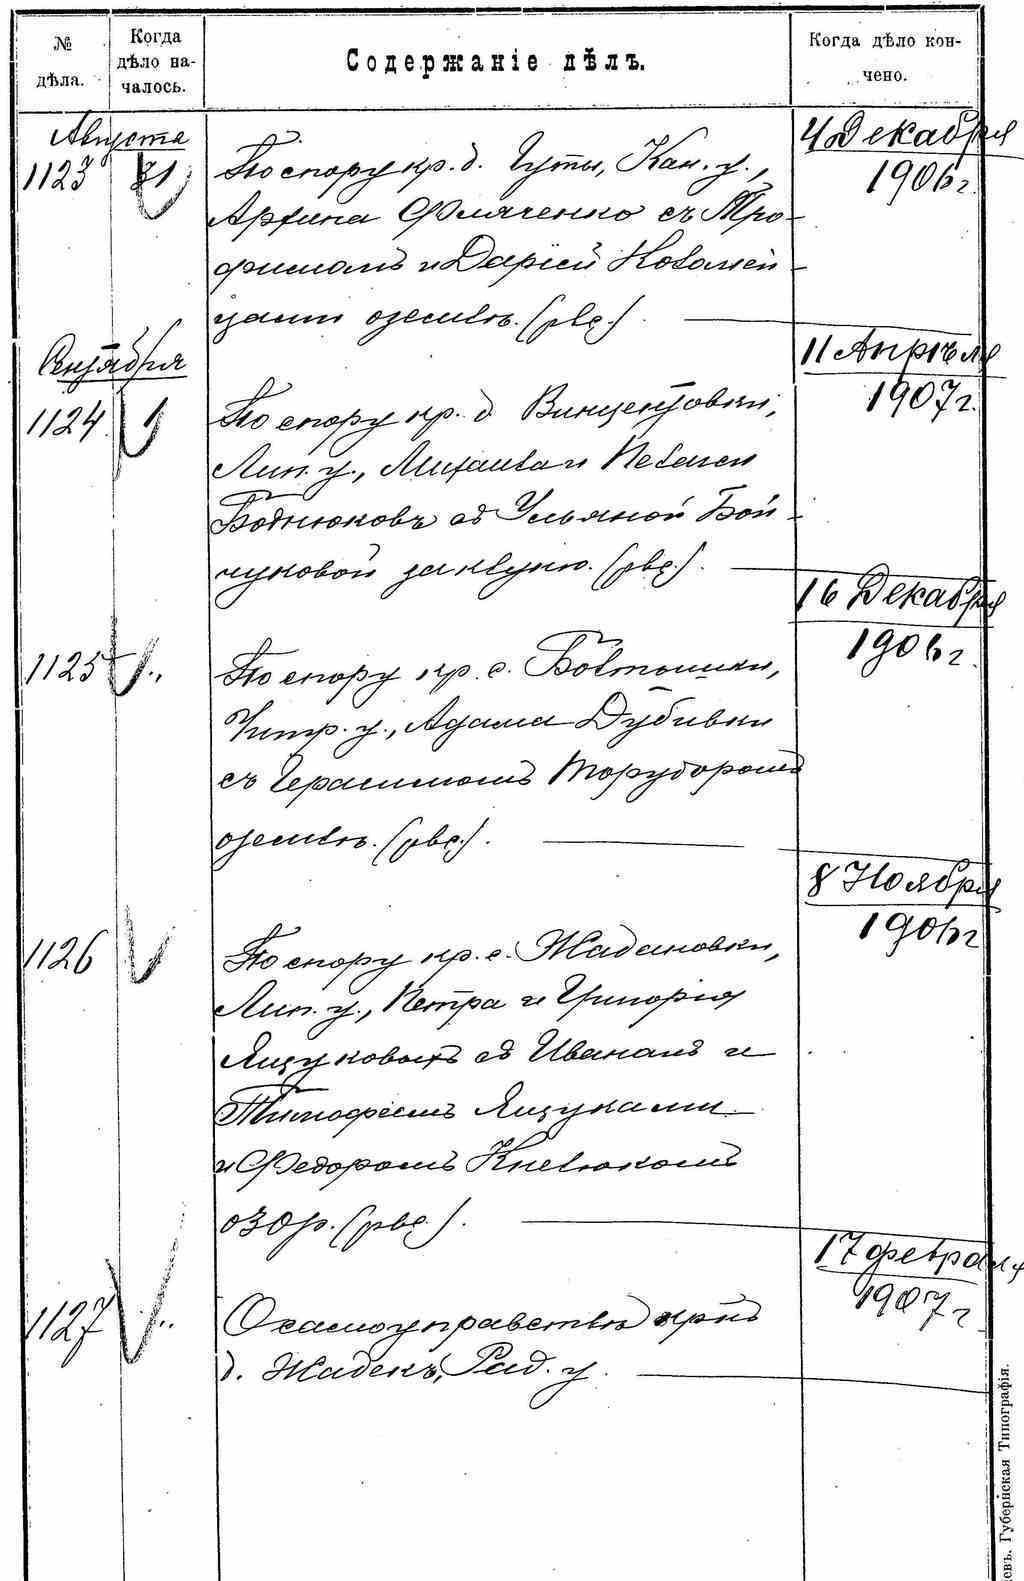 № дѣла.
Когда дѣло началось.
Содержаніе дѣлъ.
Когда дѣло кончено.
Августа
1123 31
По спору кр. д. Гуты, Кан. у.,
Архипа Фляченко съ Тро-
фимомъ и Дарьей Коломей-
цами о землѣ. (рве.).
4 Декабря
1906 г.
Сентября
1124 1
По спору кр. д. Винцентовки,
Лип. у., Михаила и Павла
Боднюковъ съ Ульяной Бой-
чуковой за клуню. (рве.).
11 Апрѣля
1907 г.
1125 „
По спору кр. с. Бовтышки,
Чигр. у., Адама Дубивки
съ Герасимомъ Торубаромъ
о землѣ. (рве.).
16 Декабря
1906 г.
1126
По спору кр. с. Жадановки,
Лип. у., Петра и Григорія
Ящуковыхъ съ Иваномъ и
Тимофеемъ Ящуками
и Федоромъ
(рве.).
8 Ноября
1906 г
1127 „
О самоуправствѣ кр-нъ
д. Жадекъ, Рад. у.
17 февраля
1907 г
евъ. Губернская Типографія.